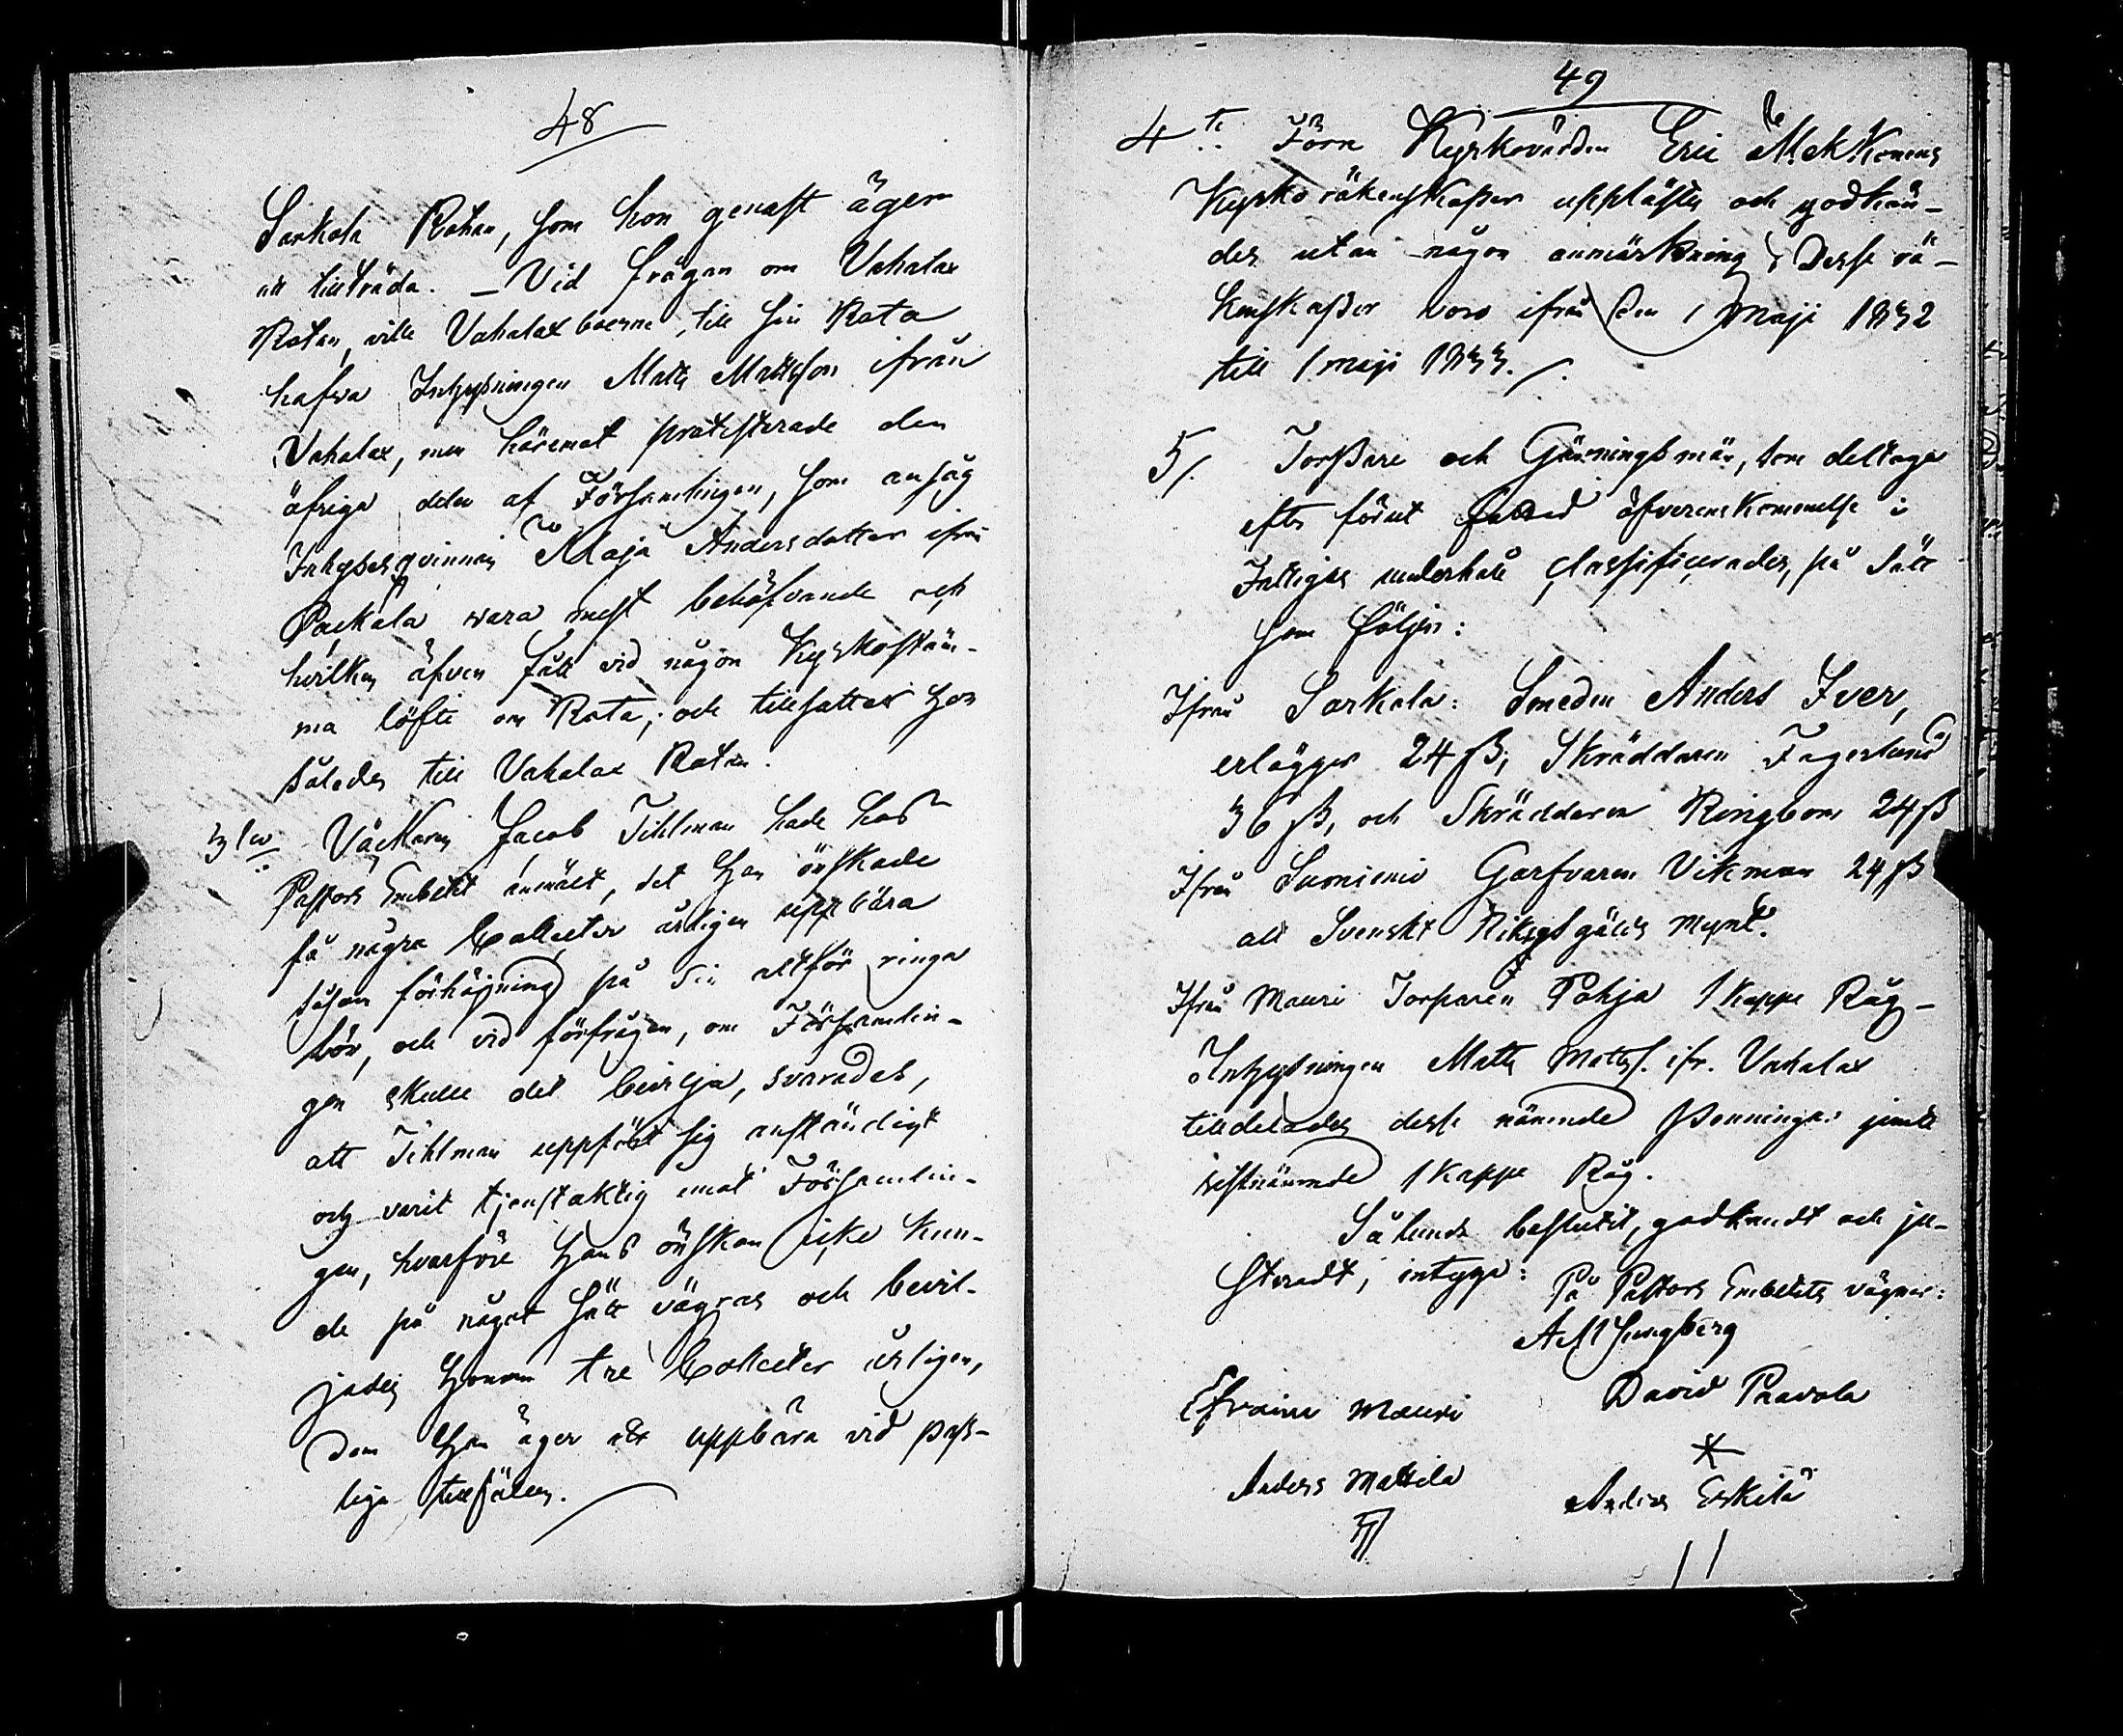 48
Sarkola Rotan, som hon genast äger
att tillträda. – Vid frågan om Vahalax
Rotan, ville Vahalaxboerne, till sin Rota
hafva Inhysningen Matts Mattsson ifrån
Vahalax, men häremot protesterade den
öfriga delen af Församlingen, som ansåg
Inhyses qvinnan Maja Andersdotter ifrån
Packala vara mest behöfvande och
hvilken äfven fått vid någon Kyrkostäm-
ma löfte om Rota; och tillsattes hon
således till Vahalax Rotan.
3/ Väckaren Jacob Tihlman hade hos
Pastors Embetet anmält, det han önskade
få några Collecter årligen uppbära
såsom förhöjning på sin alltför ringa
lön, och vid förfrågan, om Församlin-
gen skulle det bevilja, svarades,
att Tihlman uppfört sig anständigt
och varit tjenstaktig emot Församlin-
gen, hvarföre hans önskan icke kun-
de på något sätt vägras och bevil-
jades honom tre Collecter årligen,
dem han äger att uppbära vid pass-
liga tillfällen.
49
4 Förre Kyrkovärden Eric Mekkonens
Kyrko räkenskaper upplästes och godkän-
des utan någon anmärkning; Dessa rä-
kenskaper voro ifrån den 1 Maji 1832
till 1 maji 1833.
5/. Torpare och Gärningsmän, som deltaga
efter förut fattad öfverenskommelse i
Fattigas underhåll classificerades, på sätt
som följer:
Ifrån Sarkola: Smeden Anders Iver,
erlägger 24 ß; Skräddaren Fagerlund
36 ß, och Skräddaren Ringbom 24 ß
Ifrån Suoniemi Garfvaren Vikman 24 ß
allt Svenskt Riksgälds Mynt.
Ifrån Mauri Torparen Pohja 1 Kappe Råg –
Inhysningen Matts Mattss. ifr. Vahalax
tilldelades dessa nämnde Penningar jemte
sistnämnde 1 Kappe Råg.
Sålunda beslutit, godkändt och ju-
steradt, intyga: På Pastors Embetets vägnar:
A M Ljungberg
Efraim Mauri David Paavola
Anders Mattila Anders Eskila